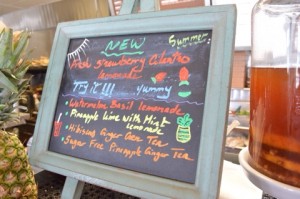 NEW
Summer
Fresh strawberry Cilantro
lemonade
Try it!!! yummy
• Watermelon Basil lemonade
• Pineapple Lime with Mint
lemonade
• Hibiscus Ginger Green Tea
• Sugar Free Pineapple Ginger Tea